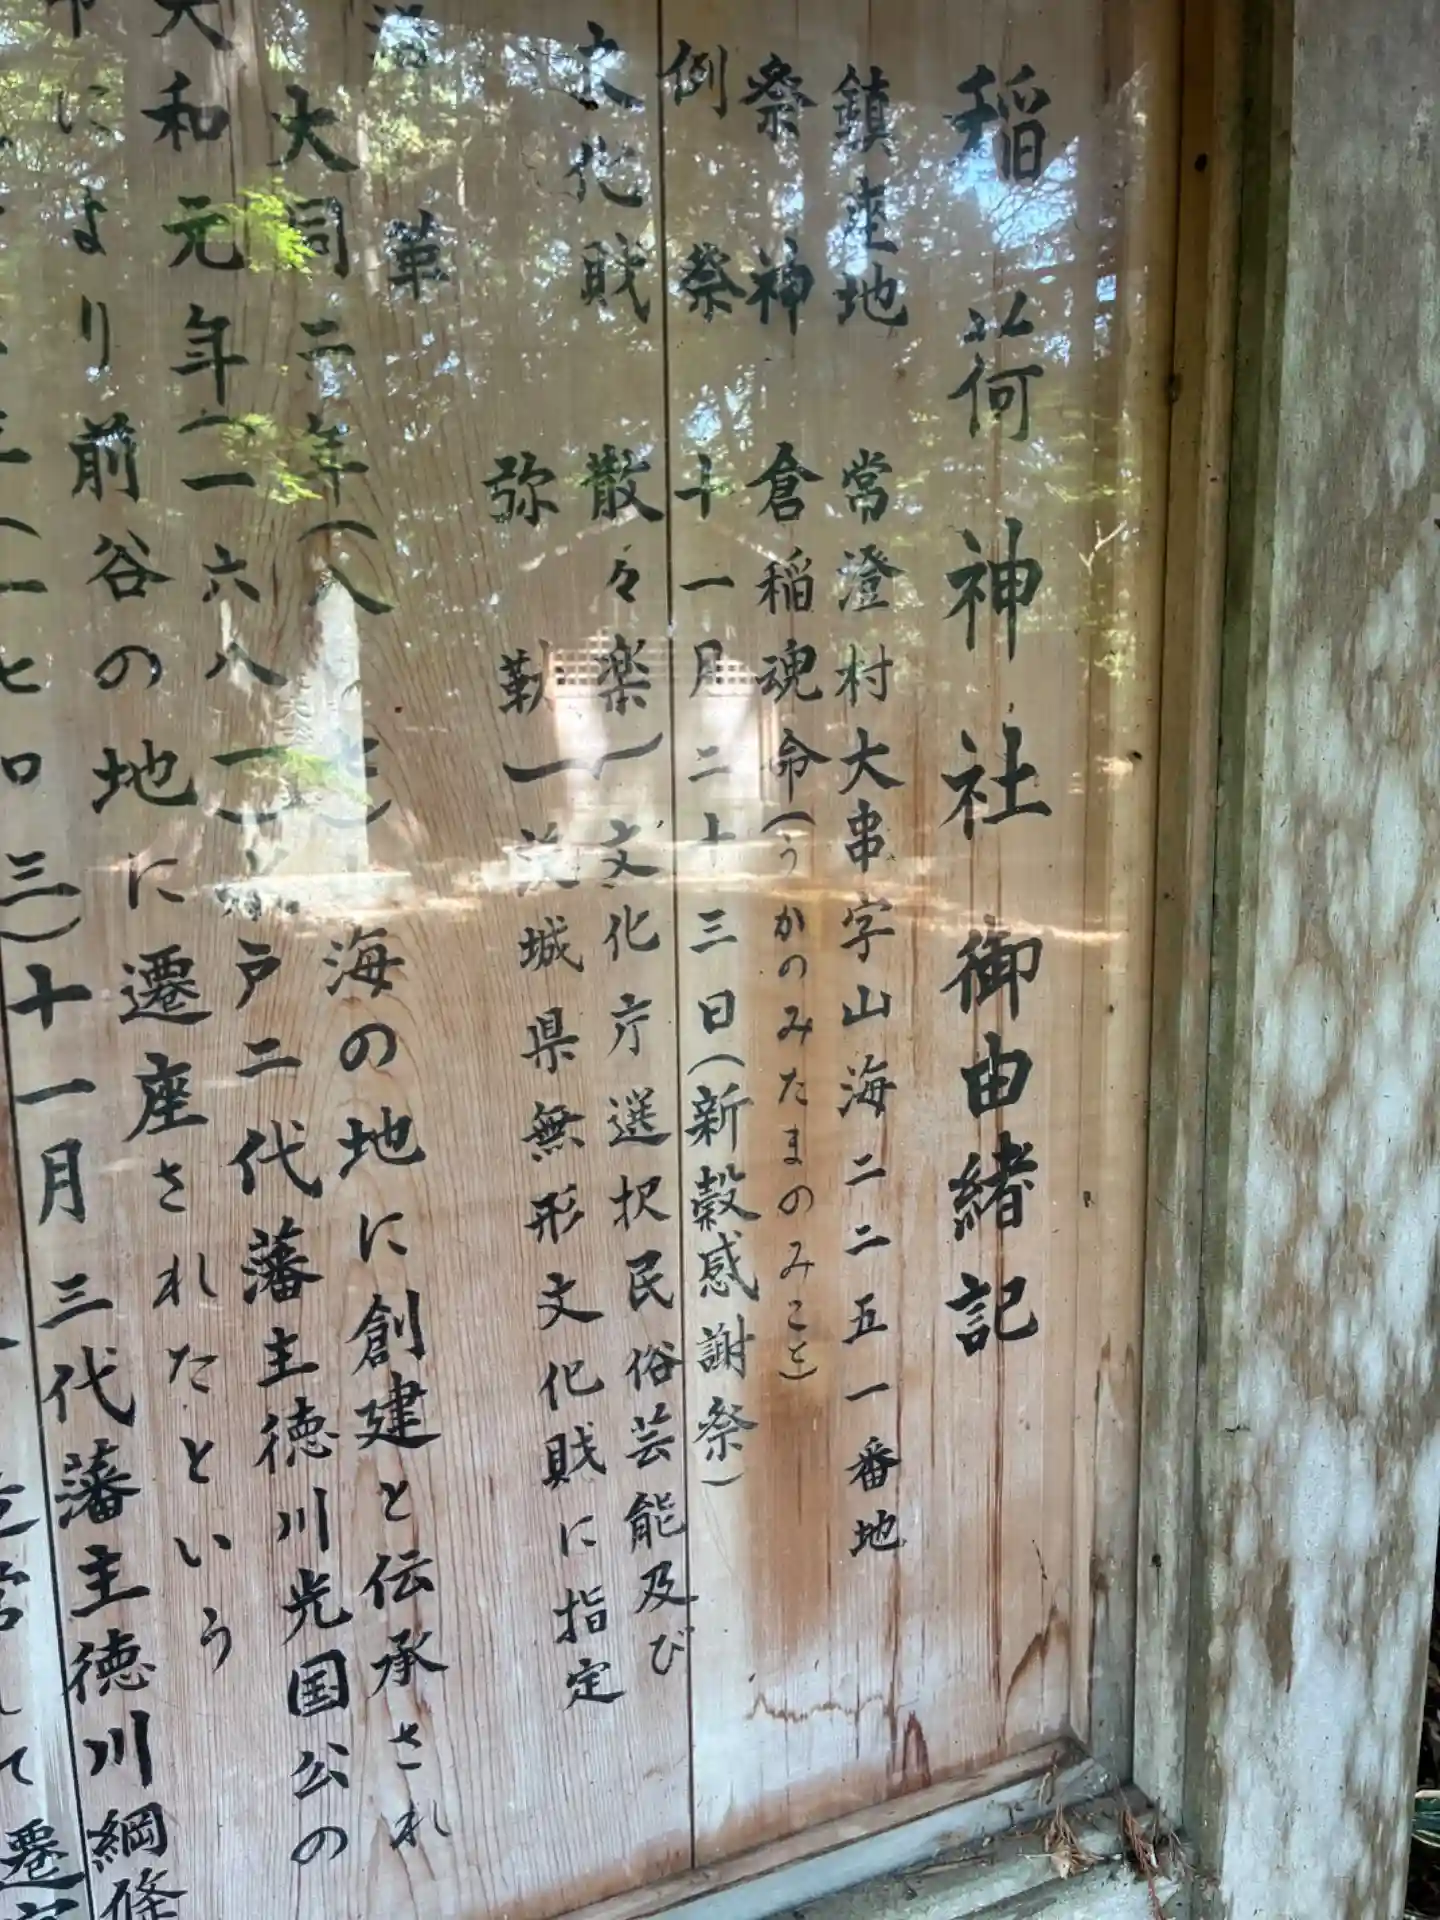 稲荷神社御由緒記
鎮座地 常澄村大串字山海二二五一番地
祭神 倉稲魂命(うかのみたまのみこと)
例祭 十一月二十三日(新穀感謝祭)
文化財 散々楽―文化庁選択民俗芸能及び
弥勒―茨城県無形文化財に指定
沿革
大同二年(八〇七)山海の地に創建と伝承され
天和元年(一六八一)水戸二代藩主徳川光国公の
命により前谷の地に遷座されたという
三(一七〇三)十一月三代藩主徳川綱條
て遷宮